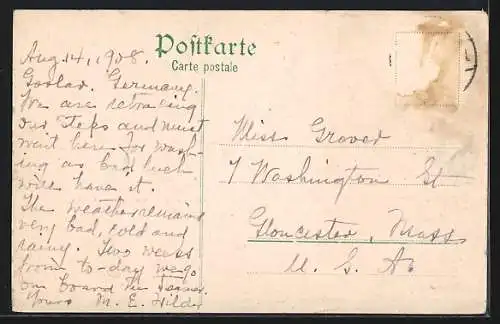 Postkarte
Carte postale
Aug. 14, 1908.
Goslar. Germany.
We are retracing
our steps and must
wait here for wash-
ing as bad luck
will have it.
The weather remains
very bad, cold and
rainy. Two weeks
from to-day we go
on board the
Yours M. E. Wilde
Miss Grover
7 Washington St
Gloucester, Mass
U. S. A.